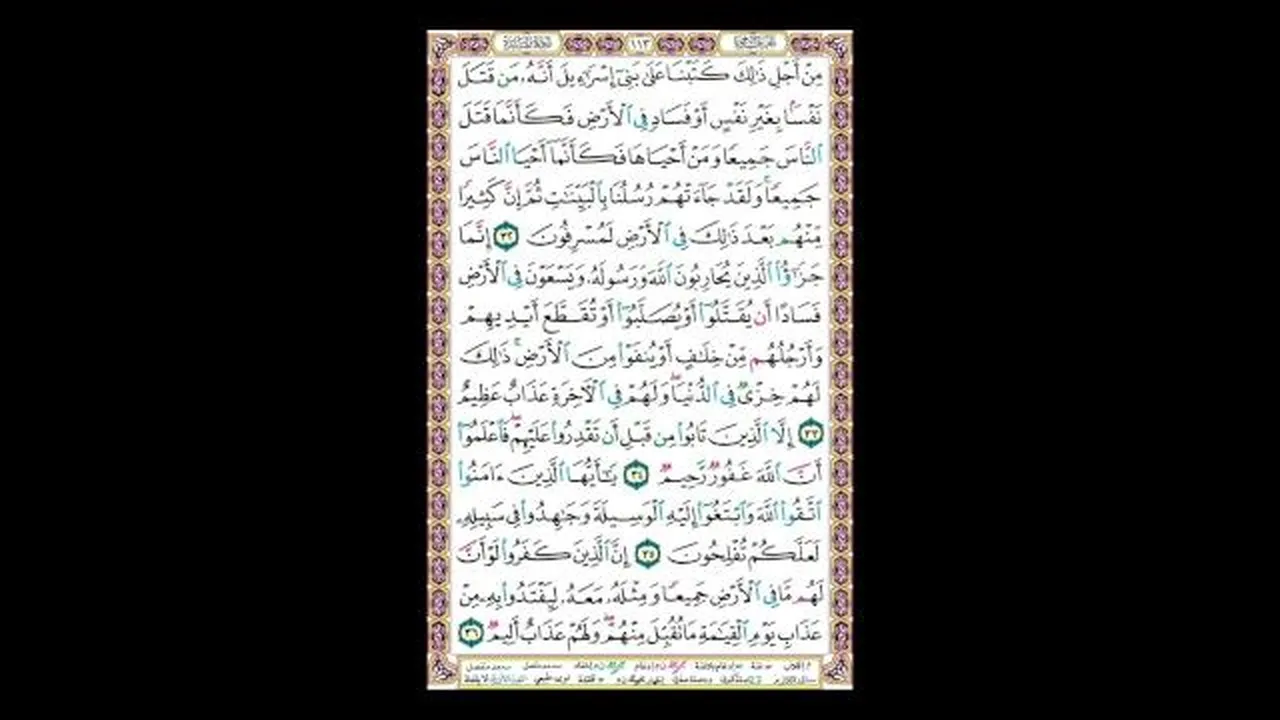 ١١٣
مِنْ أَجْلِ ذَٰلِكَ كَتَبْنَا عَلَىٰ بَنِىٓ إِسْرَٰٓءِيلَ أَنَّهُۥ مَن قَتَلَ
نَفْسًۢا بِغَيْرِ نَفْسٍ أَوْ فَسَادٍ فِى ٱلْأَرْضِ فَكَأَنَّمَا قَتَلَ
ٱلنَّاسَ جَمِيعًا وَمَنْ أَحْيَاهَا فَكَأَنَّمَآ أَحْيَا ٱلنَّاسَ
جَمِيعًا ۚ وَلَقَدْ جَآءَتْهُمْ رُسُلُنَا بِٱلْبَيِّنَٰتِ ثُمَّ إِنَّ كَثِيرًا
مِّنْهُم بَعْدَ ذَٰلِكَ فِى ٱلْأَرْضِ لَمُسْرِفُونَ ٣٢ إِنَّمَا
جَزَٰٓؤُا۟ ٱلَّذِينَ يُحَارِبُونَ ٱللَّهَ وَرَسُولَهُۥ وَيَسْعَوْنَ فِى ٱلْأَرْضِ
فَسَادًا أَن يُقَتَّلُوٓا۟ أَوْ يُصَلَّبُوٓا۟ أَوْ تُقَطَّعَ أَيْدِيهِمْ
وَأَرْجُلُهُم مِّنْ خِلَٰفٍ أَوْ يُنفَوْا۟ مِنَ ٱلْأَرْضِ ۚ ذَٰلِكَ
لَهُمْ خِزْىٌ فِى ٱلدُّنْيَا ۖ وَلَهُمْ فِى ٱلْءَاخِرَةِ عَذَابٌ عَظِيمٌ
٣٣ إِلَّا ٱلَّذِينَ تَابُوا۟ مِن قَبْلِ أَن تَقْدِرُوا۟ عَلَيْهِمْ ۖ فَٱعْلَمُوٓا۟
أَنَّ ٱللَّهَ غَفُورٌ رَّحِيمٌ ٣٤ يَٰٓأَيُّهَا ٱلَّذِينَ ءَامَنُوا۟
ٱتَّقُوا۟ ٱللَّهَ وَٱبْتَغُوٓا۟ إِلَيْهِ ٱلْوَسِيلَةَ وَجَٰهِدُوا۟ فِى سَبِيلِهِۦ
لَعَلَّكُمْ تُفْلِحُونَ ٣٥ إِنَّ ٱلَّذِينَ كَفَرُوا۟ لَوْ أَنَّ
لَهُم مَّا فِى ٱلْأَرْضِ جَمِيعًا وَمِثْلَهُۥ مَعَهُۥ لِيَفْتَدُوا۟ بِهِۦ مِنْ
عَذَابِ يَوْمِ ٱلْقِيَٰمَةِ مَا تُقُبِّلَ مِنْهُمْ ۖ وَلَهُمْ عَذَابٌ أَلِيمٌ ٣٦